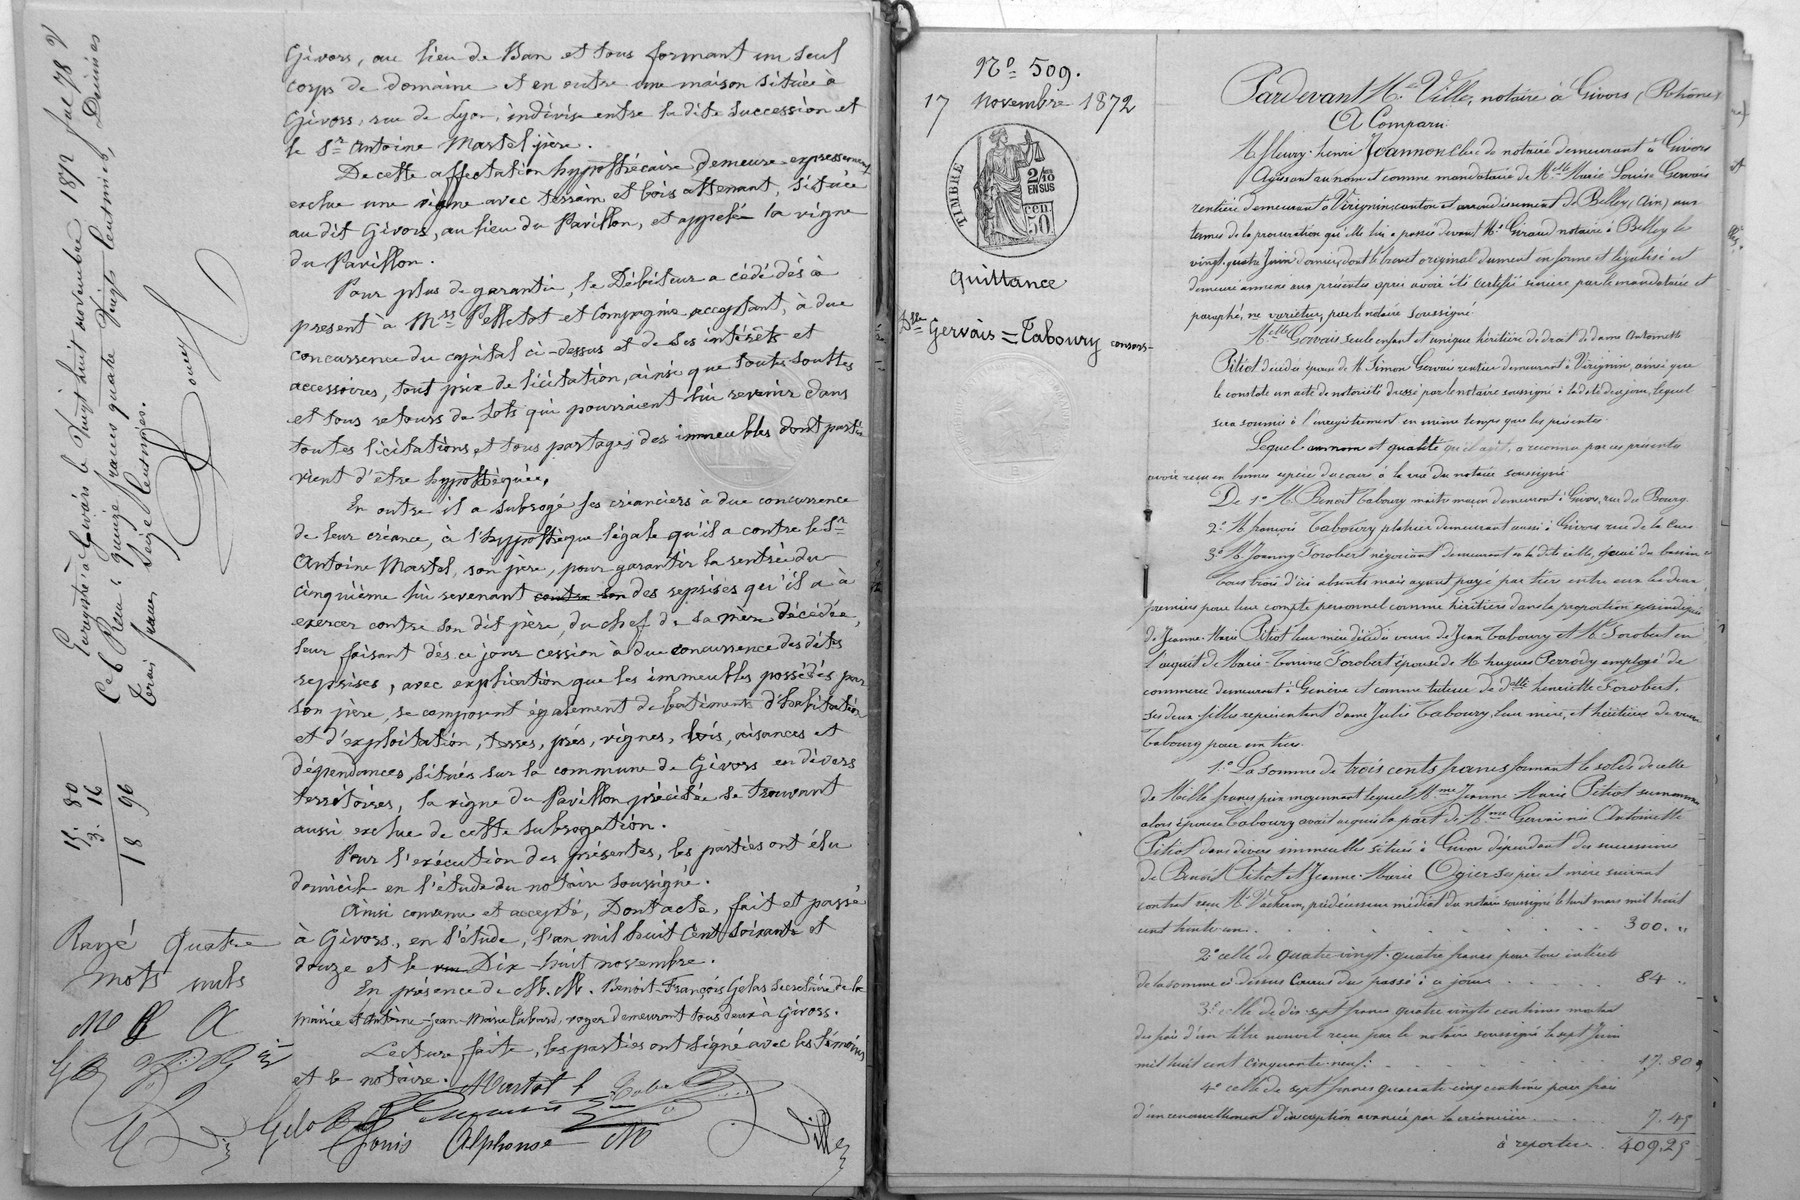 Givors, au lieu de Ban et tous formant un seul
corps de domaine et en outre une maison située à
Givors, rue de Lyon, indivise entre la dite succession et
le Sr Antoine Martel père.
De cette affectation hypothécaire demeure expressement
exclue une vigne avec terrain et bois attenant, située
au dit Givors, au lieu du Pavillon, et appelée la vigne
du Pavillon.
Pour plus de garantie, le Débiteur a cédé dés à
present à Mrs Pelletot et Compagnie acceptant, à due
concurrence du capital ci-dessus et de ses intérêts et
accessoires, tout prix de licitation, ainsi que toutes soultes
et tous retours de lots qui pourraient lui revenir dans
toutes licitations et tous partages des immeubles dont partie
vient d'être hypothéquée.
En outre il a subrogé ses créanciers à due concurrence
de leur créance, à l'hypothèque légale qu'il a contre le Sr
Antoine Martel, son père, pour garantir la rentrée du
cinquième lui revenant contre son des reprises qu'il a à
exercer contre son dit père, du chef de sa mère décédée,
leur faisant dès ce jour cession à due concurrence des dites
reprises, avec explication que les immeubles possédés par
son père, se composent également de batiments d'habitation
et d'exploitation, terres, prés, vignes, bois, aisances et
dépendances, situés sur la commune de Givors en divers
territoires, la vigne du Pavillon précitée se trouvant
aussi exclue de cette subrogation.
Pour l'exécution des présentes, les parties ont élu
domicile en l'étude du notaire soussigné.
Ainsi convenu et accepté, Dont acte, fait et passé
à Givors, en l'étude, l'an mil huit cent soixante et
douze et le Dix-huit novembre.
En présence de M. M. Benoit-François Gelas secrétaire de la
mairie et Antoine-Jean-Marie Tabard, demeurant tous deux à Givors.
Lecture faite, les parties ont signé avec les témoins
et le notaire.
Martel
Gelas
Louis Alphonse M
Ville
Enregistré à Givors le Vingt huit novembre 1872 fol 78
Reçu : quinze francs quatre vingts centimes, Décimes
trois francs seize centimes.
15. 80
3. 16
18 96
Rayé Quatre
mots nuls
No 509.
17 Novembre 1872
TIMBRE
2/10 EN SUS
50 cen
Quittance
Dlle Gervais = Taboury consors
Pardevant Me Ville, notaire à Givors (Rhône)
A Comparu
M fleury-henri Joannon clerc de notaire demeurant à Givors
Agissant au nom et comme mandataire de Melle Marie Louise Gervais
rentière demeurant à Virignin, canton et arrondissement de Belley (Ain) aux
termes de la procuration qu'elle lui a passée devant Me Giraud notaire à Belley le
vingt-quatre Juin dernier, dont le brevet original dument en forme et légalisé est
demeuré annexé aux présentes après avoir été certifié sincère par le mandataire et
paraphé, ne varietur, par le notaire soussigné.
Melle Gervais, seule enfant et unique héritière de droit de dame Antoinette
Pitiot décédée épouse de M. Simon Gervais rentier demeurant à Virignin, ainsi que
le constate un acte de notoriété dressé par le notaire soussigné à la date de ce jour, lequel
sera soumis à l'enregistrement en même temps que les présentes.
Lequel au nom et qualité qu'il agit, a reconnu par ces présentes
avoir reçu en bonnes espèces de cours à la vue du notaire soussigné
De 1o M. Benoit Taboury maitre maçon demeurant à Givors, rue du Bourg.
2o M. françois Taboury platrier demeurant aussi à Givors rue de la
3o M. Joanny Forobert négociant demeurant en la dite ville, quai du bassin
Tous trois d'ici absents mais ayant payé par tiers entre eux les deux
premiers pour leur compte personnel comme héritiers dans la proportion
de Jeanne-Marie Pitiot leur mère décédée veuve de Jean Taboury et M. Forobert en
l'acquit de Marie-Tonine Forobert épouse de M. hugues Perrody employé de
commerce demeurant à Genève et comme tuteur de delle henriette Forobert,
ses deux filles représentant dame Julie Taboury, leur mère, et héritières de veuve
Taboury pour un tiers.
1o La somme de trois cents francs formant le solde de celle
de Mille francs prix moyennant lequel Mme Jeanne Marie Pitiot surnommée
alors épouse Taboury avait acquis la part de Mme Gervais née Antoinette
Pitiot dans divers immeubles situés à Givors dépendant des successions
de Benoit Pitiot et Jeanne-Marie Ogier ses père et mère suivant
contrat reçu Me Vacheron, prédécesseur médiat du notaire soussigné le huit mars mil huit
cent trente un . . . . . . . . 300. "
2o celle de quatre-vingt-quatre francs pour tous intérêts
de la somme ci-dessus courus du passé à ce jour . . . . . 84 "
3o celle de dix-sept francs quatre vingts centimes montant
du prix d'un titre nouvel reçu par le notaire soussigné le sept Juin
mil huit cent cinquante-neuf . . . . . . 17. 80
4o celle de sept francs quarante-cinq centimes pour frais
d'un renouvellement d'inscription avancés par la créancière . . . . 7. 45
à reporter. 409. 25